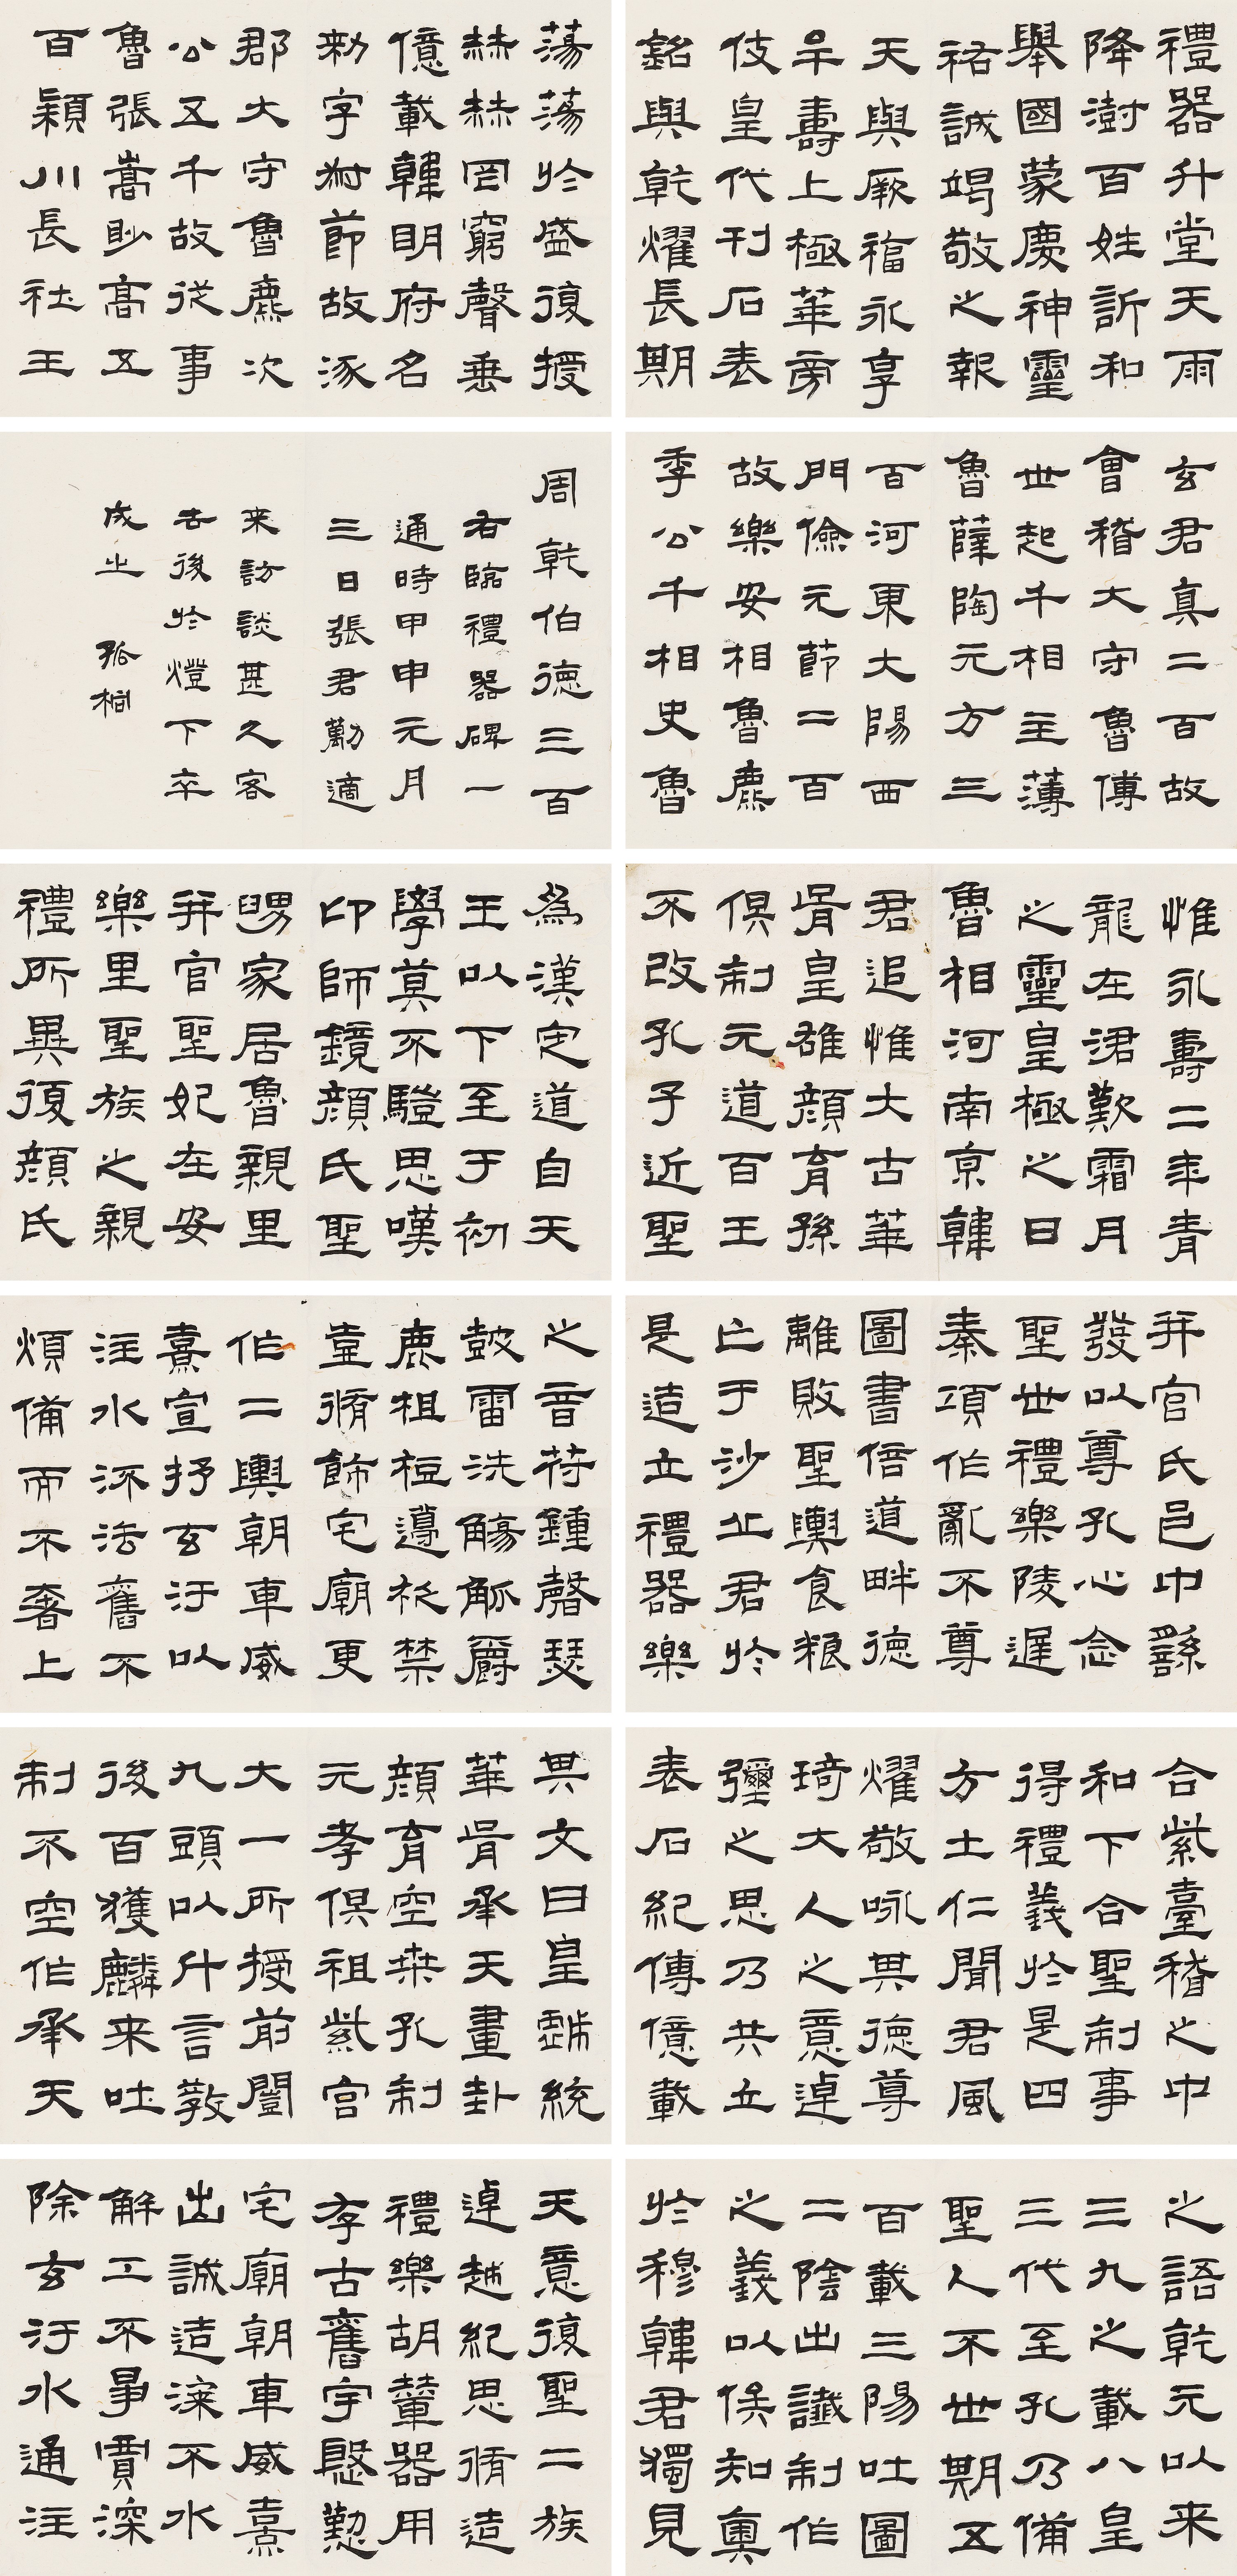 禮器升堂天雨
降澍百姓訢和
舉國蒙慶神靈
祐誠竭敬之報
天與厥福永享
牟壽上極華旁
伎皇代刊石表
銘與乾燿長期
蕩蕩於盛復授
赫赫罔窮聲垂
億載韓明府名
勑字叔節故涿
郡大守魯麃次
公五千故從事
魯張嵩眇高五
百潁川長社王
玄君真二百故
會稽大守魯傅
世起千相主薄
魯薛陶元方三
百河東大陽西
門儉元節二百
故樂安相魯麃
季公千相史魯
周乾伯德三百
右臨禮器碑一
通時甲申元月
三日張君勱適
来訪談甚久客
去後於燈下卒
成之 孤桐
惟永壽二年青
龍在涒歎霜月
之靈皇極之日
魯相河南京韓
君追惟大古華
胥皇雄顏育孫
俱制元道百王
不改孔子近聖
為漢定道自天
王以下至于初
學莫不驥思嘆
卬師鏡顏氏聖
舅家居魯親里
并官聖妃在安
樂里聖族之親
禮所異復顏氏
并官氏邑中繇
發以尊孔心念
聖世禮樂陵遲
秦項作亂不尊
圖書倍道畔德
離敗聖輿食粮
亡于沙丘君於
是造立禮器樂
之音苻鍾磬瑟
鼓雷洗觴觚爵
鹿柤梪籩柉禁
壺脩飾宅廟更
作二輿朝車威
熹宣抒玄汙以
注水流法舊不
煩備而不奢上
合紫臺稽之中
和下合聖制事
得禮義於是四
方土仁聞君風
燿敬咏其德尊
琦大人之意逴
彌之思乃共立
表石紀傳億載
其文曰皇戲統
華胥承天畫卦
顏育空桒孔制
元孝俱祖紫宮
大一所授前闓
九頭以什言教
後百獲麟来吐
制不空作承天
之語乾元以来
三九之載八皇
三代至孔乃備
聖人不世期五
百載三陽吐圖
二陰出讖制作
之義以俟知奧
於穆韓君獨見
天意復聖二族
逴越紀思脩造
禮樂胡輦器用
存古舊宇慇懃
宅廟朝車威熹
出誠造𣻳不水
解工不爭賈深
除玄汙水通注